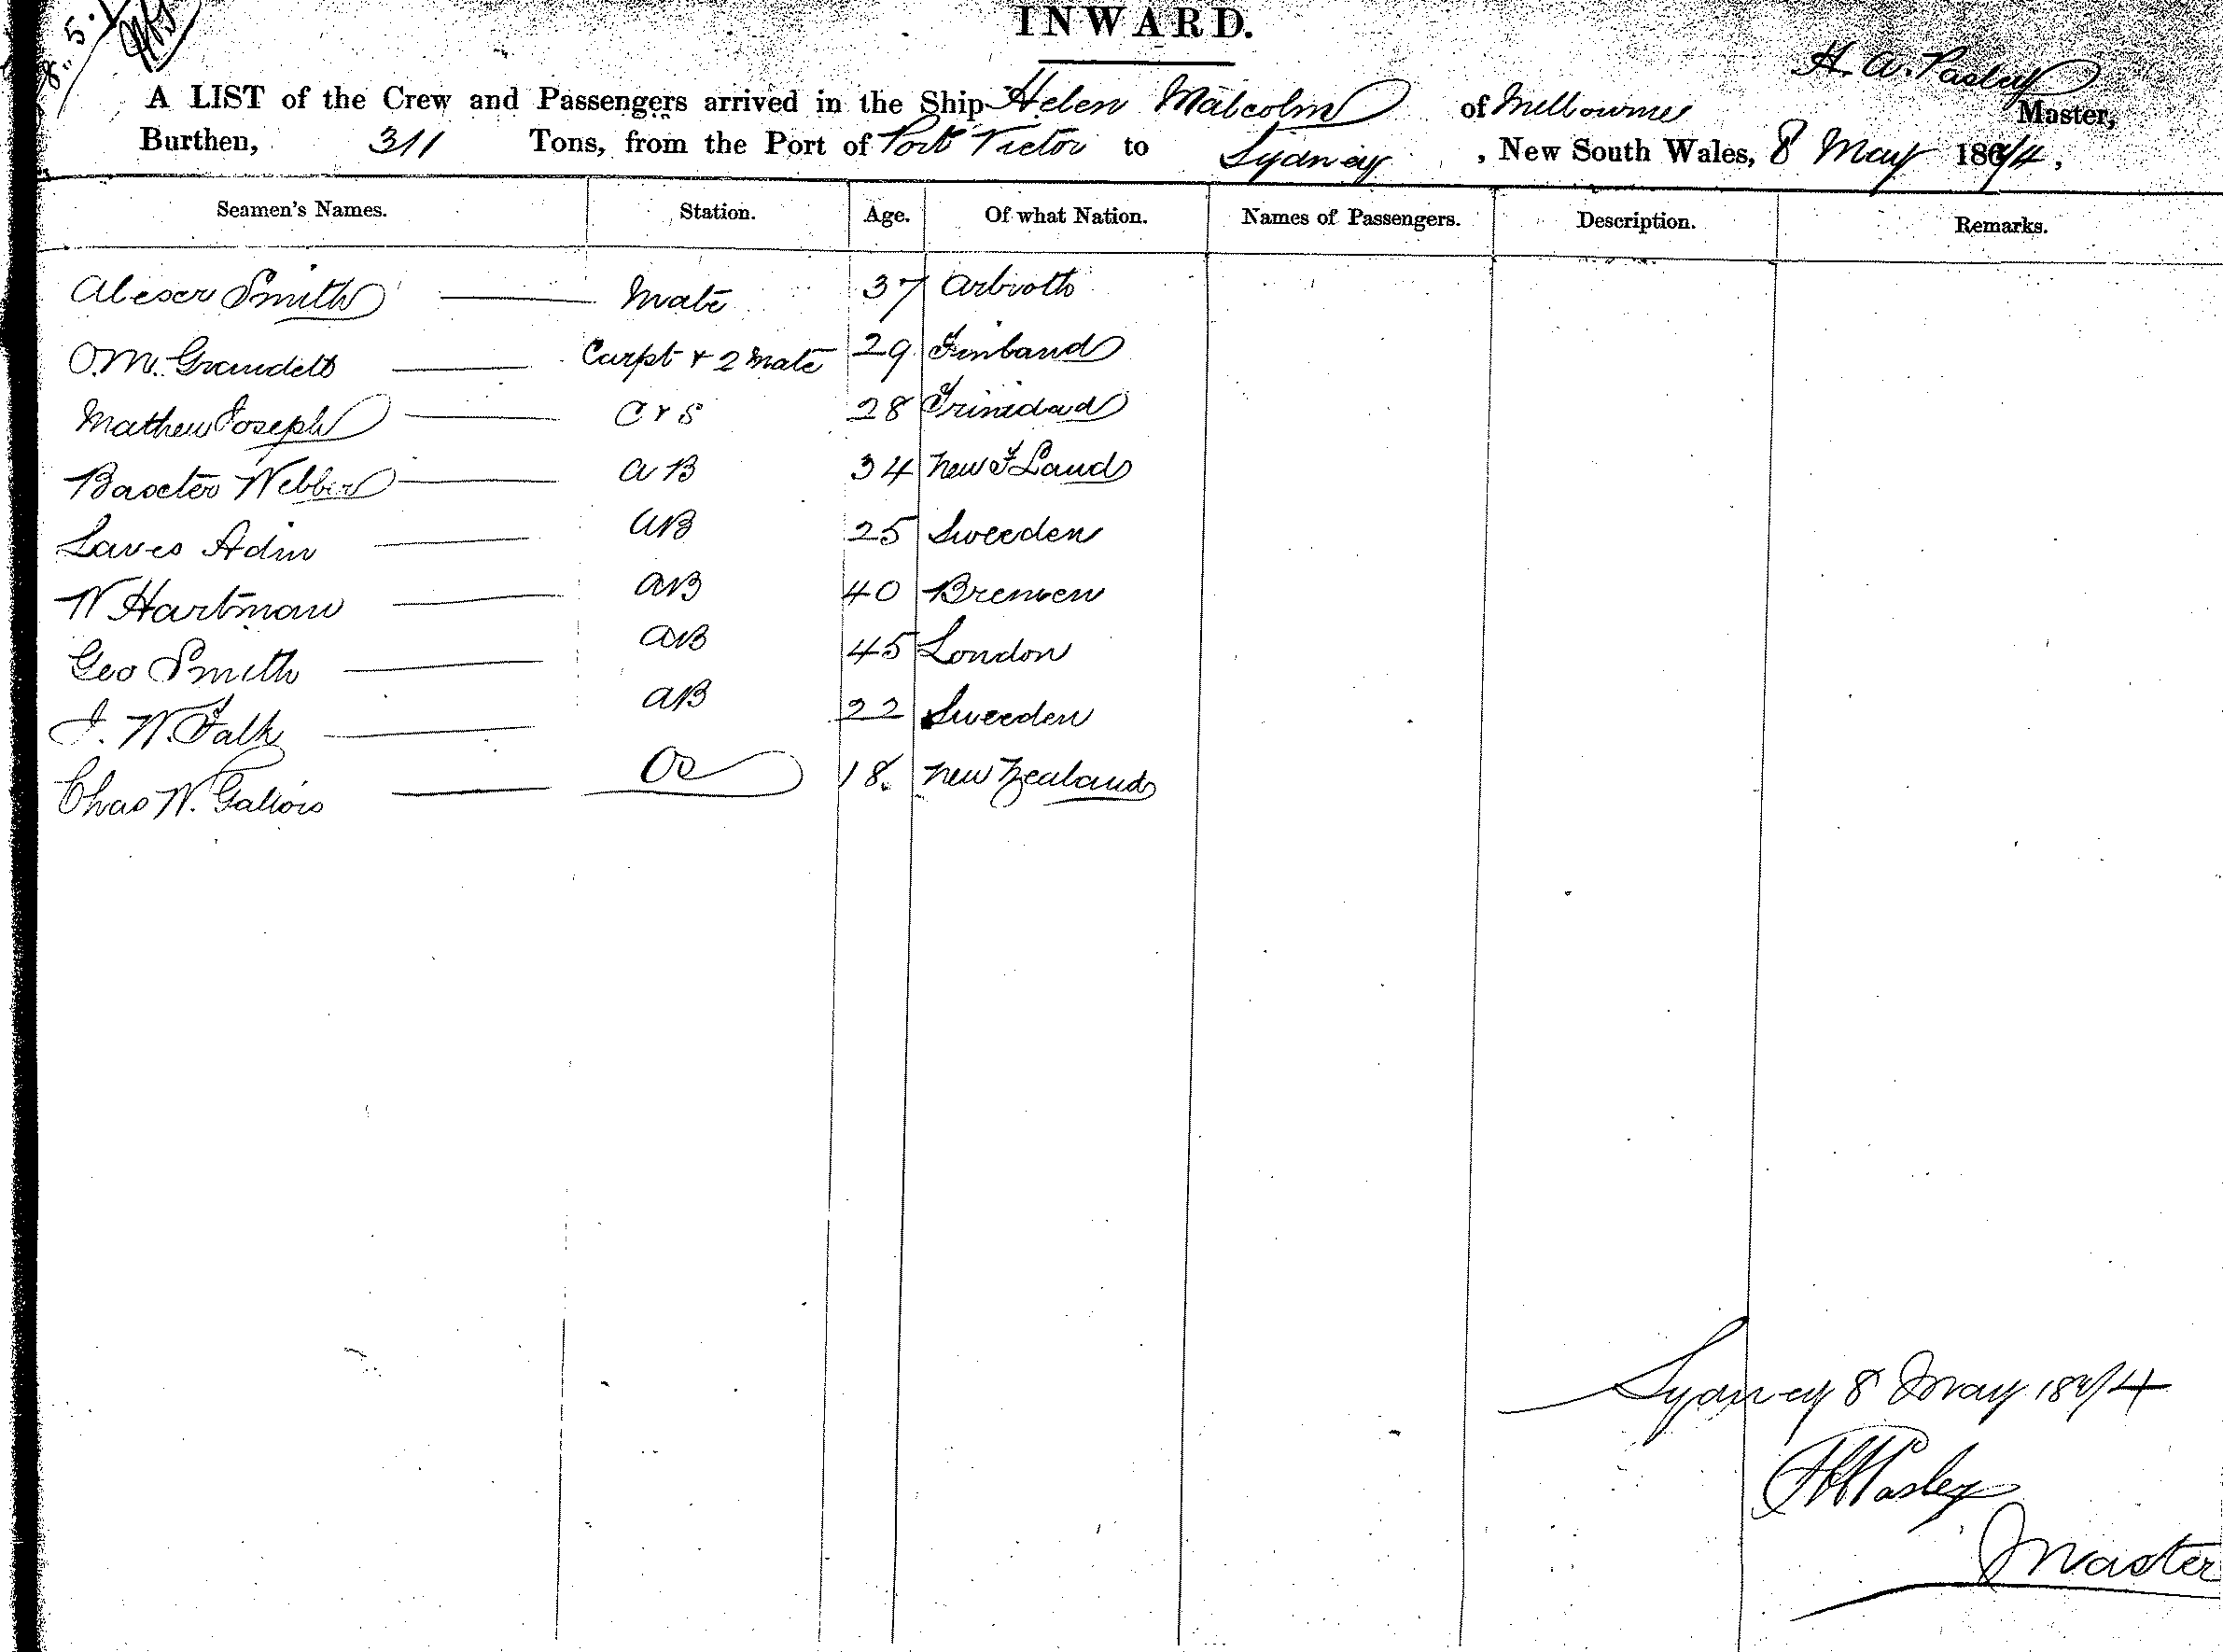 8. 5.
INWARD.
H. W. Pasley
A LIST of the Crew and Passengers arrived in the Ship Helen Malcolm of Melbourne Master,
Burthen, 311 Tons, from the Port of Port Victor to Sydney, New South Wales, 8 May 1874,
Seamen's Names. Station. Age. Of what Nation. Names of Passengers. Description. Remarks.
Smith Mate 37 Arbroth
O.M. Grandell Carpt + 2 Mate 29 Finland
Mathew Joseph C + S 28 Trinidad
Baxter Webber AB 34 New F Land
Adin AB 25 Sweeden
W Hartman AB 40 Bremen
Geo Smith AB 45 London
J. W. Falk AB 22 Sweeden
Chas W. Os 18. New Zealand
Sydney 8 May 1874
Pasley
Master